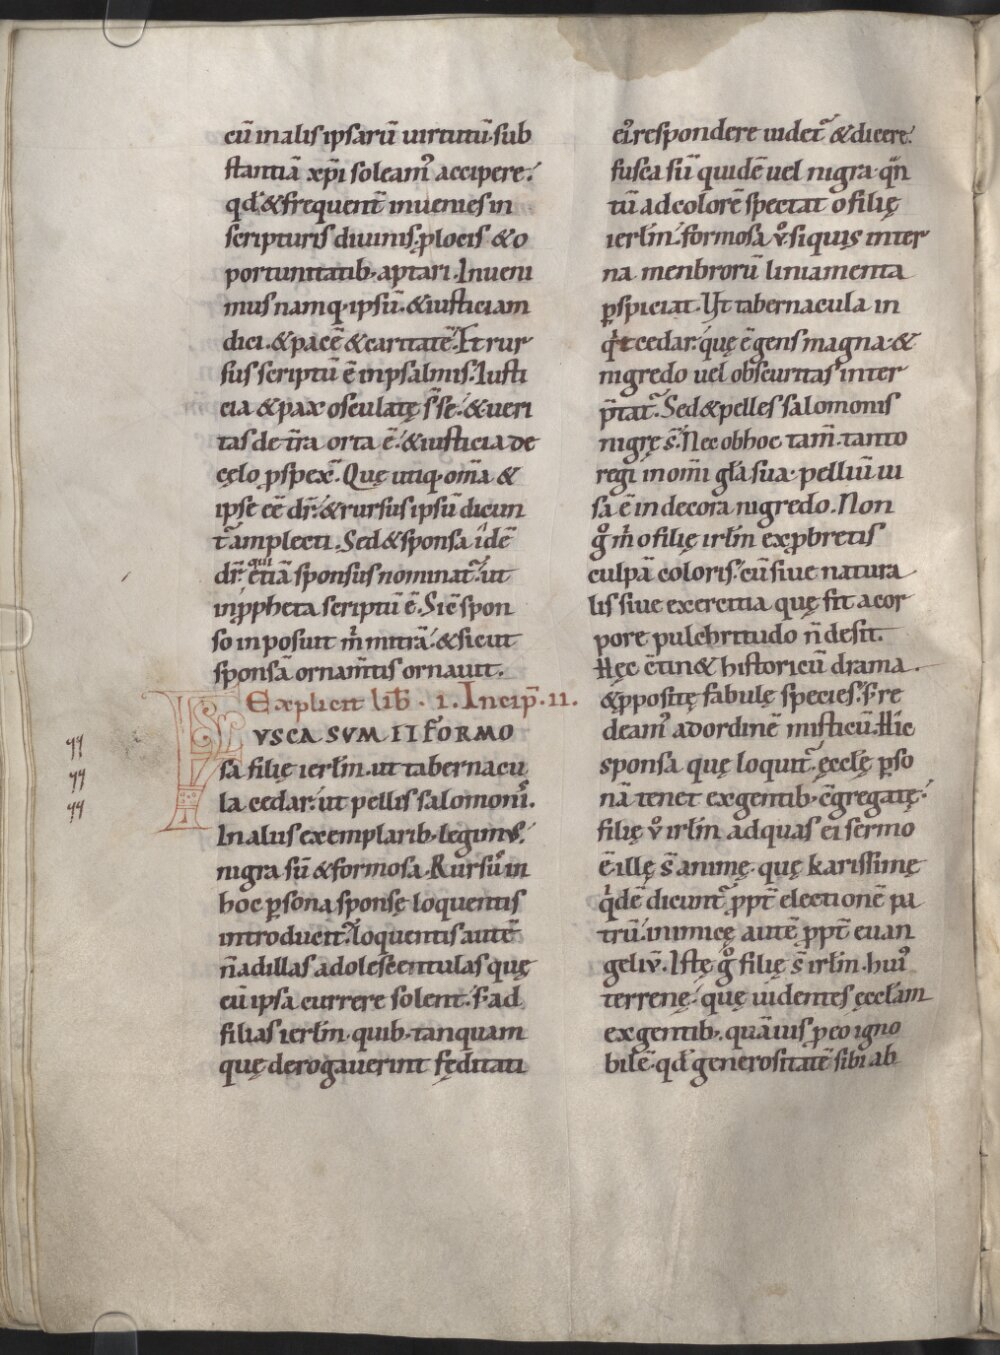 cū in aliis ipsarū uirtutū sub
stantiā xp̄i soleam᷒ accipere.
qd̄ & frequent̄ inuenies in
scripturis diuinis. ꝓ locis & o
portunitatib; aptari. Inueni
mus namq; ipsū. & iusticiam
dici. & pacē & caritatē. Et rur
sus scriptū ē in psalmis. Iusti
cia & pax osculatę s̄ se. & ueri
tas de t̄ra orta ē. & iusticia de
cęlo ꝓspex̄. Quę utiq; om̄a &
ipse eē dr̄. & rursus ipsū dicun
t᷒ amplecti. Sed & sponsa idē
dr̄. qui etiā sponsus nominat᷒. ut
in ꝓpheta scriptū ē. Sic̄ spon
so inposuit m̄ mitrā. & sicut
sponsā ornam̄tis ornauit.
Explicit lib̄. i. Incip̄. ii.
FVSCA SVM II FORMO
sa filię ierl̄m. ut tabernacu
la cedar. ut pellis salomonis.
In aliis exemplarib; legimus.
nigra sū & formosa. Rursū in
hoc ꝑsona sponsę loquentis
introducit᷒. loquentis autē
n̄ ad illas adolescentulas quę
cū ipsa currere solent. s; ad
filias ierl̄m. quib; tanquam
quę derogauerint fęditati
ei᷒ respondere uidet᷒ & dicere.
fusca sū quidē uel nigra. qn̄
tū ad colorē spectat o filię
ierl̄m. formosa v̊ si quis inter
na menbrorū liniamenta
ꝑspiciat. Ut tabernacula in
qt cedar. quę ē gens magna. &
nigredo uel obscuritas inter
p̄tat᷒. Sed & pelles salomonis
nigrę s̄. Nec ob hoc tam̄. tanto
regi in om̄i gl̄a sua. pelliū ui
sa ē indecora nigredo. Non
g̊ m̄ o filię irl̄m exꝓbretis
culpā coloris. cū siue natura
lis siue exercitia quę fit a cor
pore pulchritudo n̄ desit.
Hęc c̄tin& historicū drama.
& ꝓpositę fabulę species. s; re
deam᷒ ad ordinē misticū. Hic
sponsa quę loquit᷒. ęccl̄ę ꝑso
nā tenet ex gentib; c̄gregatę.
filię v̊ irl̄m ad quas ei sermo
ē. illę s̄ animę. quę karissimę
qdē dicunt᷒ ꝓpt̄ electionē pa
trū. inimicę autē ꝓpt̄ euan
geliū. Istę g̊ filię s̄ irl̄m. hui᷒
terrenę. quę uidentes ęccl̄am
ex gentib;. quāuis ꝓ eo igno
bilē. qd̄ generositatē sibi ab